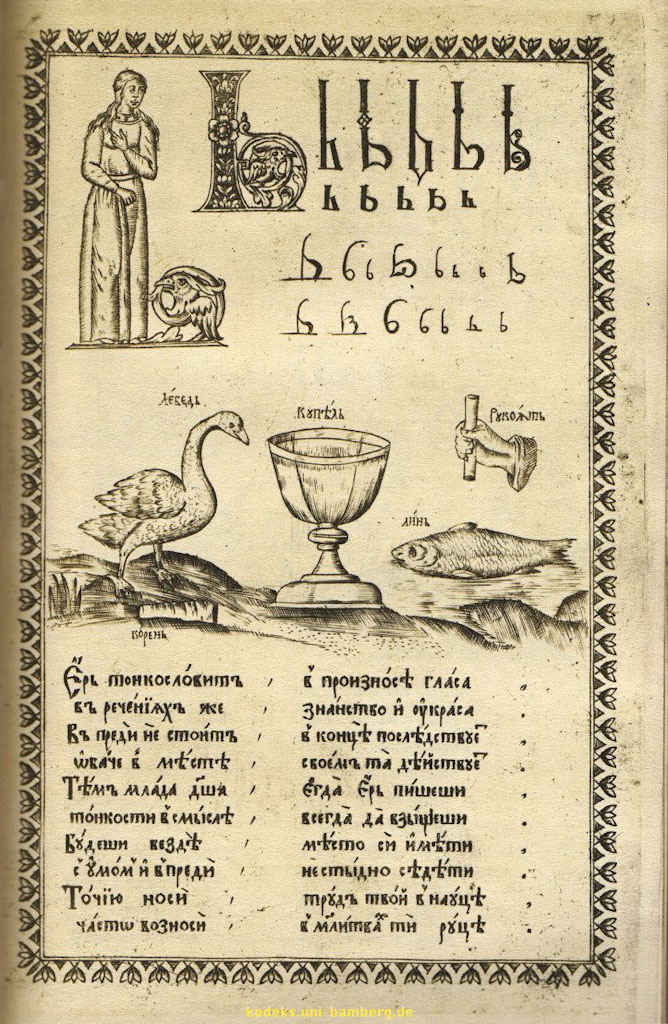 Ь Ь Ь Ь Ь Ь
Ь Ь Ь Ь Ь
Ле́бедь
Купѣ́ль
Рукоѧ́ть
ли́нь
корень
Е҆́рь тонкосло́витъ , в̾ произно́сѣ гла́са .
въ рече́нїѧхъ же зна́нство и҆ ᲂу҆кра́са
Въ преди́ не стои́тъ , в̾ концѣ̀ послѣ́дствуе
ѻ҆ба́че в̾ мѣ́стѣ , свое́мъ та дѣ́йствуе
Тѣ́мъ мла́да дш҃а , Е҆гда̀ Е҆́рь пи́шеши .
то́нкости в̾ смы́слѣ , всегда̀ да взы́щеши .
Бу́деши вездѣ̀ , мѣ́сто си̂ и҆мѣ́ти .
с̾ ᲂу҆мо́мъ и҆ в̾преди́ не сты́дно сѣдѣ́ти .
То́чїю носѝ , тру́дъ тво́й в̾ нау́цѣ .
ча́стѡ возносѝ , в̾ мл҃итва ти̂ ру́цѣ .
kodeks.uni-bamberg.de